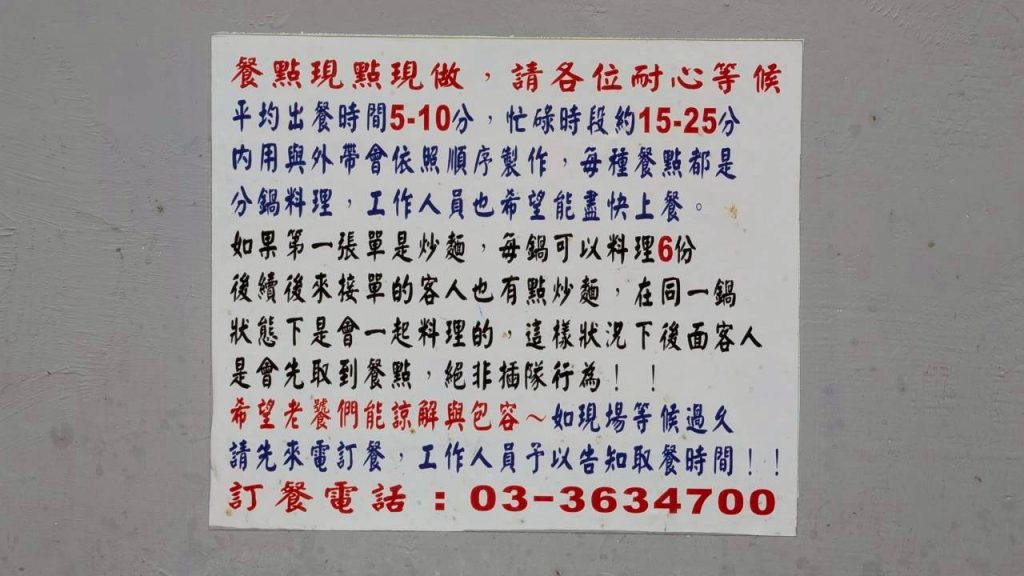 餐點現點現做，請各位耐心等候
平均出餐時間5-10分，忙碌時段約15-25分
內用與外帶會依照順序製作，每種餐點都是
分鍋料理，工作人員也希望能盡快上餐。
如果第一張單是炒麵，每鍋可以料理6份
後續後來接單的客人也有點炒麵，在同一鍋
狀態下是會一起料理的，這樣狀況下後面客人
是會先取到餐點，絕非插隊行為！！
希望老饕們能諒解與包容～如現場等候過久
請先來電訂餐，工作人員予以告知取餐時間！！
訂餐電話：03-3634700